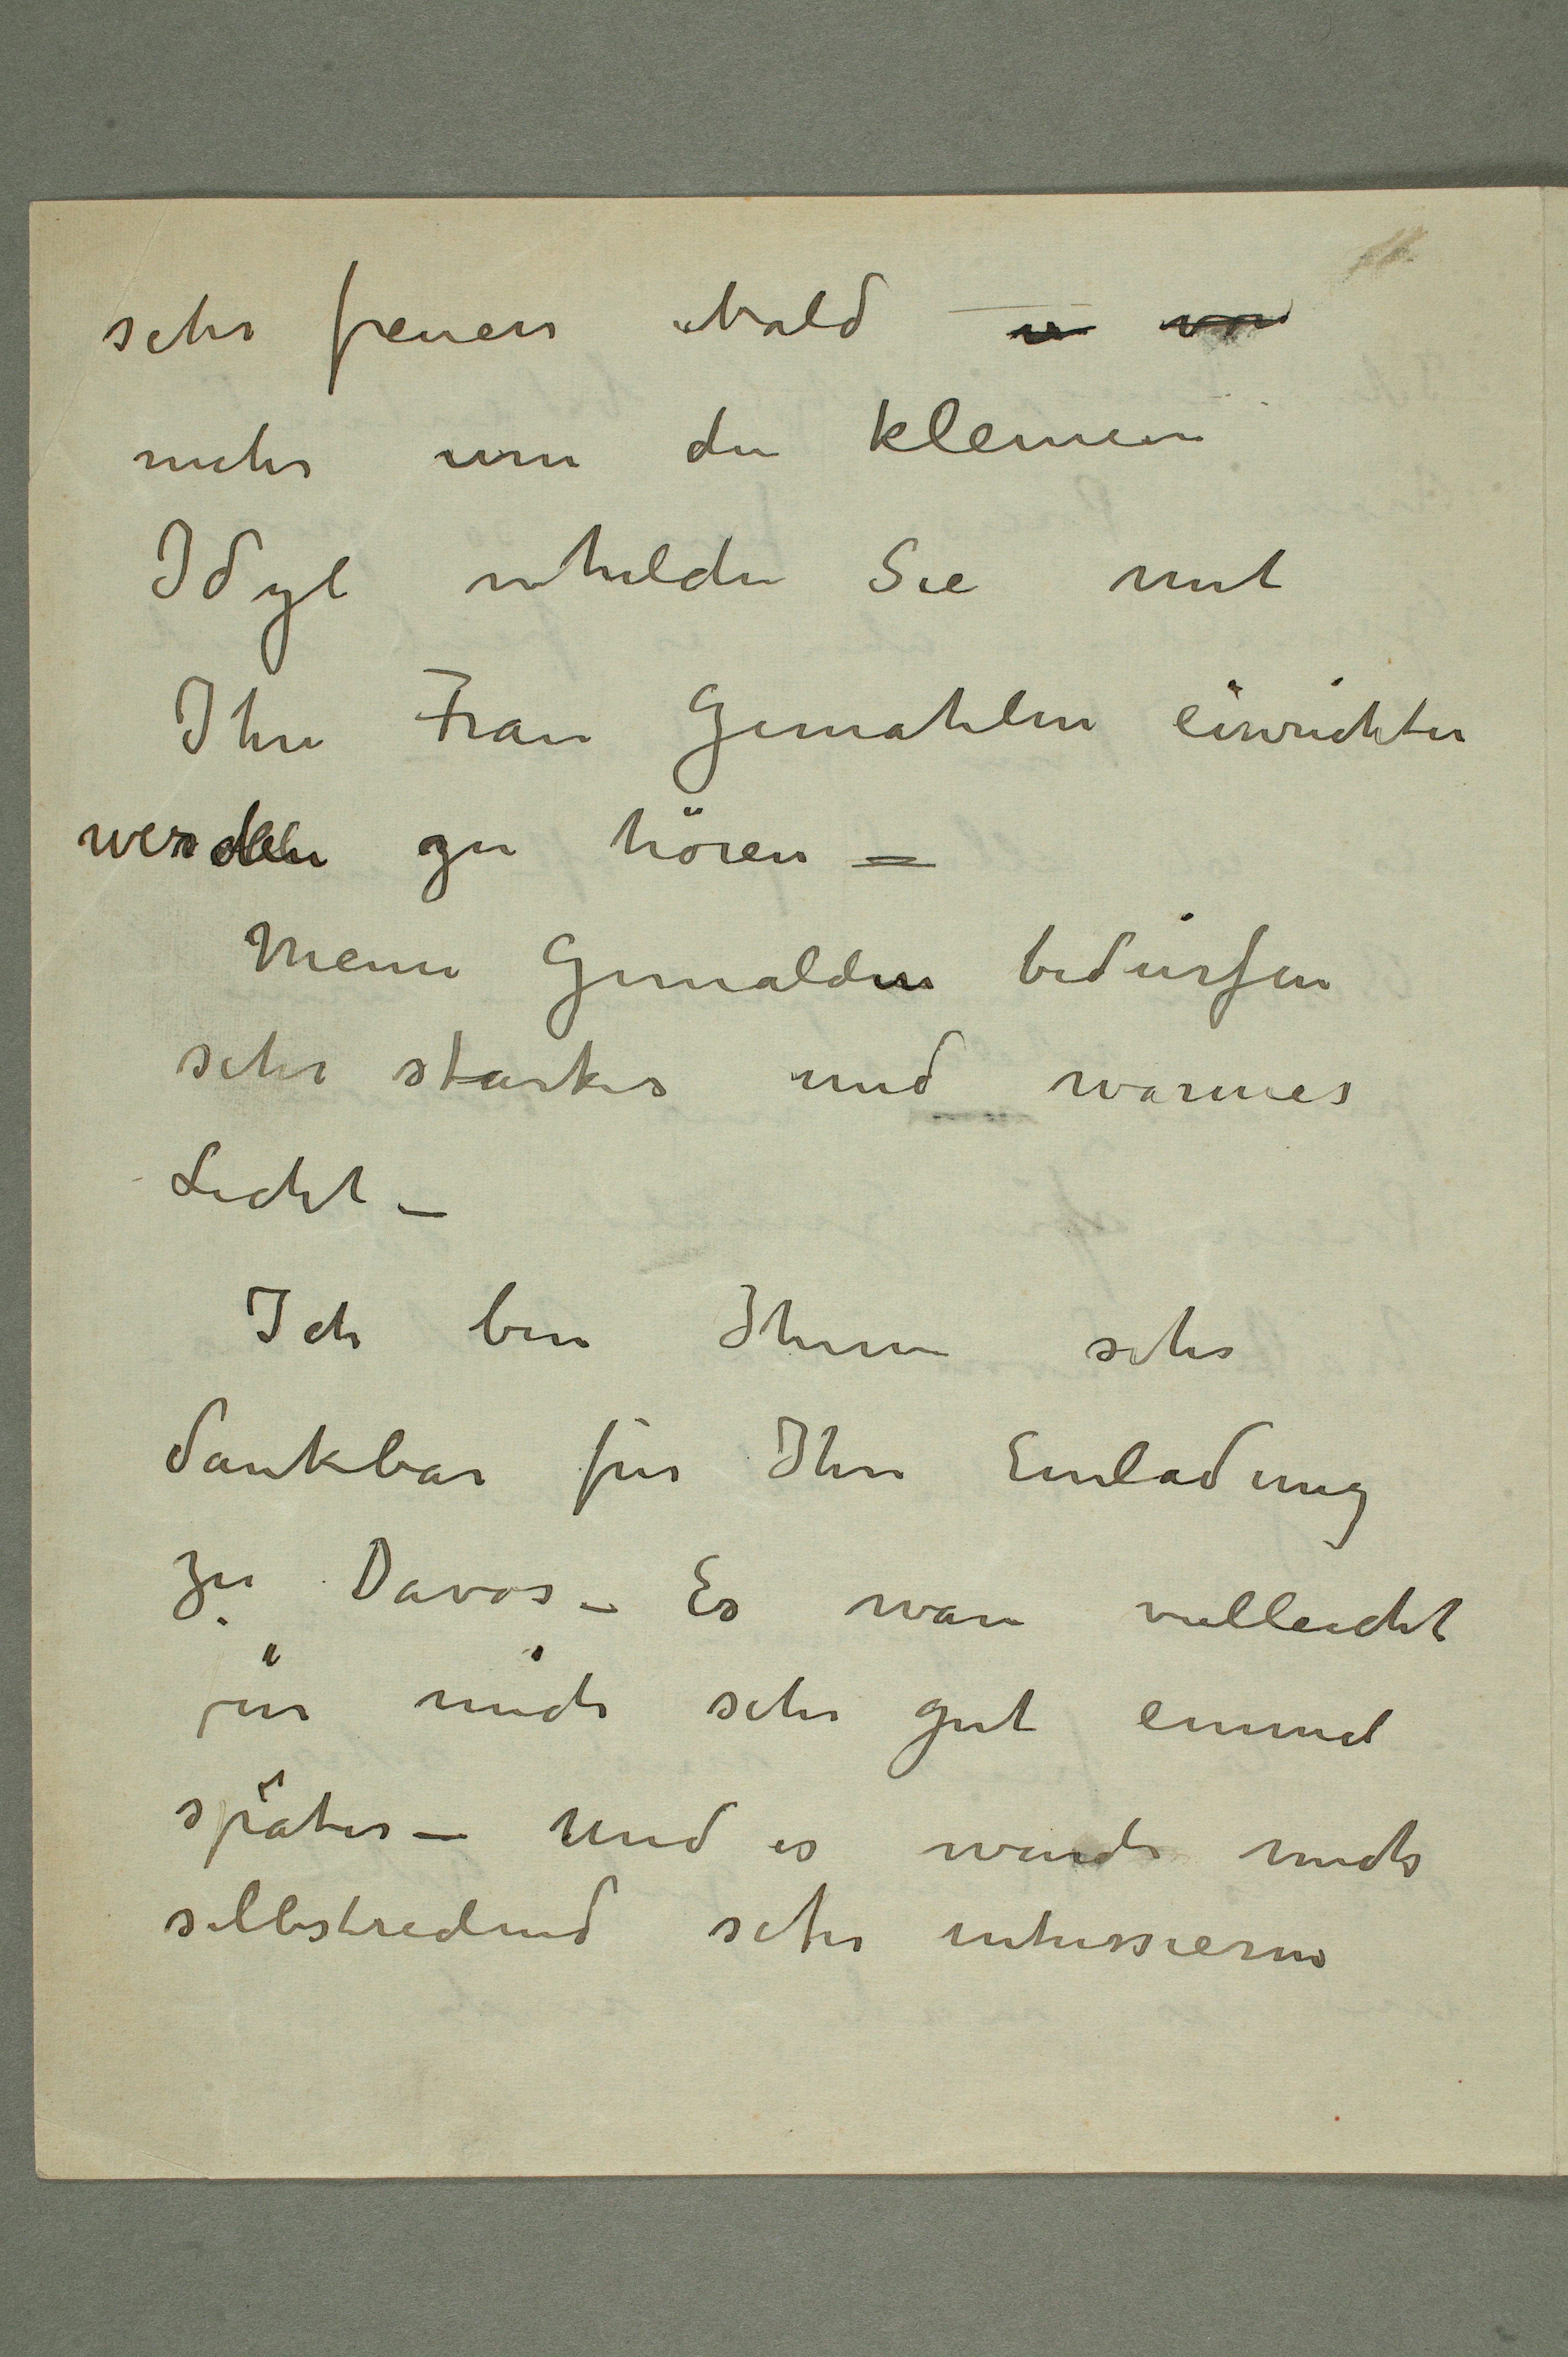 sehr freuen bald
mehr um den kleinen
Idyl whelden Sie mit
Ihre Frau Gemahlin einrichten
werden zu hören –
Meine Gemälden bedürfen
sehr starkes und warmes
Licht –
Ich bin Ihnen sehr
dankbar für Ihre Einladung
zu Davos – Es ware vielleicht
für mich sehr gut einmal
später – Und es wurde mich
selbstredend sehr interessieren